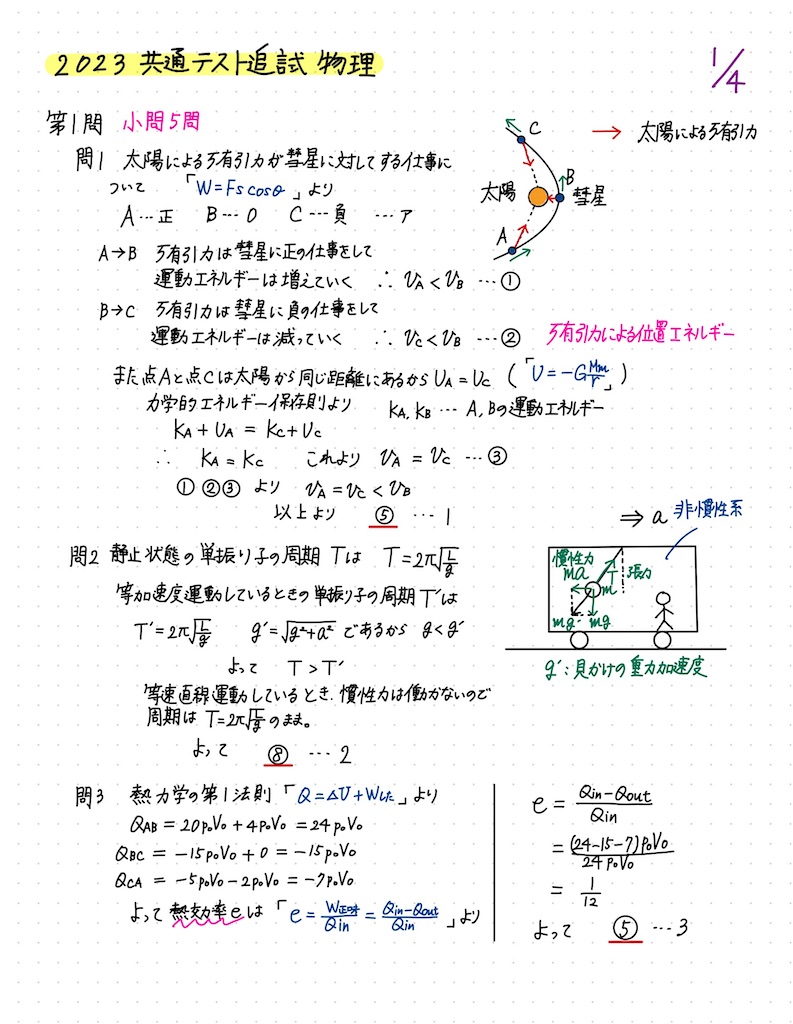 2023 共通テスト追試 物理
1/4
第1問 小問5問
問1 太陽による万有引力が彗星に対してする仕事に
ついて 「W=Fs cosθ」より
A…正 B…0 C…負 …ア
A→B 万有引力は彗星に正の仕事をして
運動エネルギーは増えていく ∴ vA < vB …①
B→C 万有引力は彗星に負の仕事をして
運動エネルギーは減っていく ∴ vC < vB …②
→ 太陽による万有引力
C
B
太陽
彗星
A
万有引力による位置エネルギー
また点Aと点Cは太陽から同じ距離にあるから UA = UC (「U = -G Mm/r」)
力学的エネルギー保存則より KA, KB … A, Bの運動エネルギー
KA + UA = KC + UC
∴ KA = KC これより vA = vC …③
①②③より vA = vC < vB
以上より ⑤ …1
問2 静止状態の単振り子の周期Tは T = 2π√(L/g)
等加速度運動しているときの単振り子の周期T'は
T' = 2π√(L/g') g' = √(g²+a²) であるから g < g'
よって T > T'
等速直線運動しているとき、慣性力は働かないので
周期は T = 2π√(L/g) のまま。
よって ⑧ …2
⇒ a 非慣性系
慣性力
ma
T
張力
m
mg'
mg
g' : 見かけの重力加速度
問3 熱力学の第1法則「Q = ΔU + Wした」より
QAB = 20p₀V₀ + 4p₀V₀ = 24p₀V₀
QBC = -15p₀V₀ + 0 = -15p₀V₀
QCA = -5p₀V₀ - 2p₀V₀ = -7p₀V₀
よって熱効率eは「e = W正味/Qin = (Qin - Qout)/Qin」より
e = (Qin - Qout)/Qin
= (24-15-7)p₀V₀/24p₀V₀
= 1/12
よって ⑤ …3